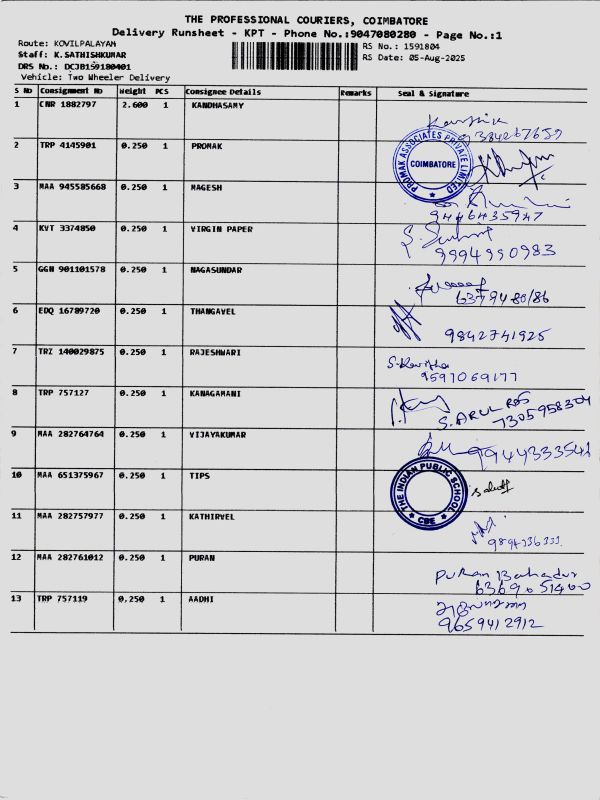 THE PROFESSIONAL COURIERS, COIMBATORE
Delivery Runsheet - KPT - Phone No.:9047080280 - Page No.:1
Route: KOVILPALAYAM
RS No.: 1591804
Staff: K.SATHISHKUMAR
RS Date: 05-Aug-2025
DRS No.: DCJB159180401
Vehicle: Two Wheeler Delivery
S No Consignment No Weight PCS Consignee Details Remarks Seal & Signature
1 CNR 1882797 2.600 1 KANDHASAMY
2 TRP 4145901 0.250 1 PROMAK
PROMAK ASSOCIATES PRIVATE LIMITED
COIMBATORE
3 MAA 945585668 0.250 1 MAGESH
9446435947
4 KVT 3374850 0.250 1 VIRGIN PAPER
9994990983
5 GGN 901101578 0.250 1 NAGASUNDAR
6 EDQ 16789720 0.250 1 THANGAVEL
9842741925
7 TRZ 140029875 0.250 1 RAJESHWARI
9597069177
8 TRP 757127 0.250 1 KANAGAMANI
S. ARUL
7305958304
9 MAA 282764764 0.250 1 VIJAYAKUMAR
9944333542
10 MAA 651375967 0.250 1 TIPS
THE INDIAN PUBLIC SCHOOL
CBE
11 MAA 282757977 0.250 1 KATHIRVEL
12 MAA 282761012 0.250 1 PURAN
PURAN Bahadur
6369651400
13 TRP 757119 0.250 1 AADHI
9659412912